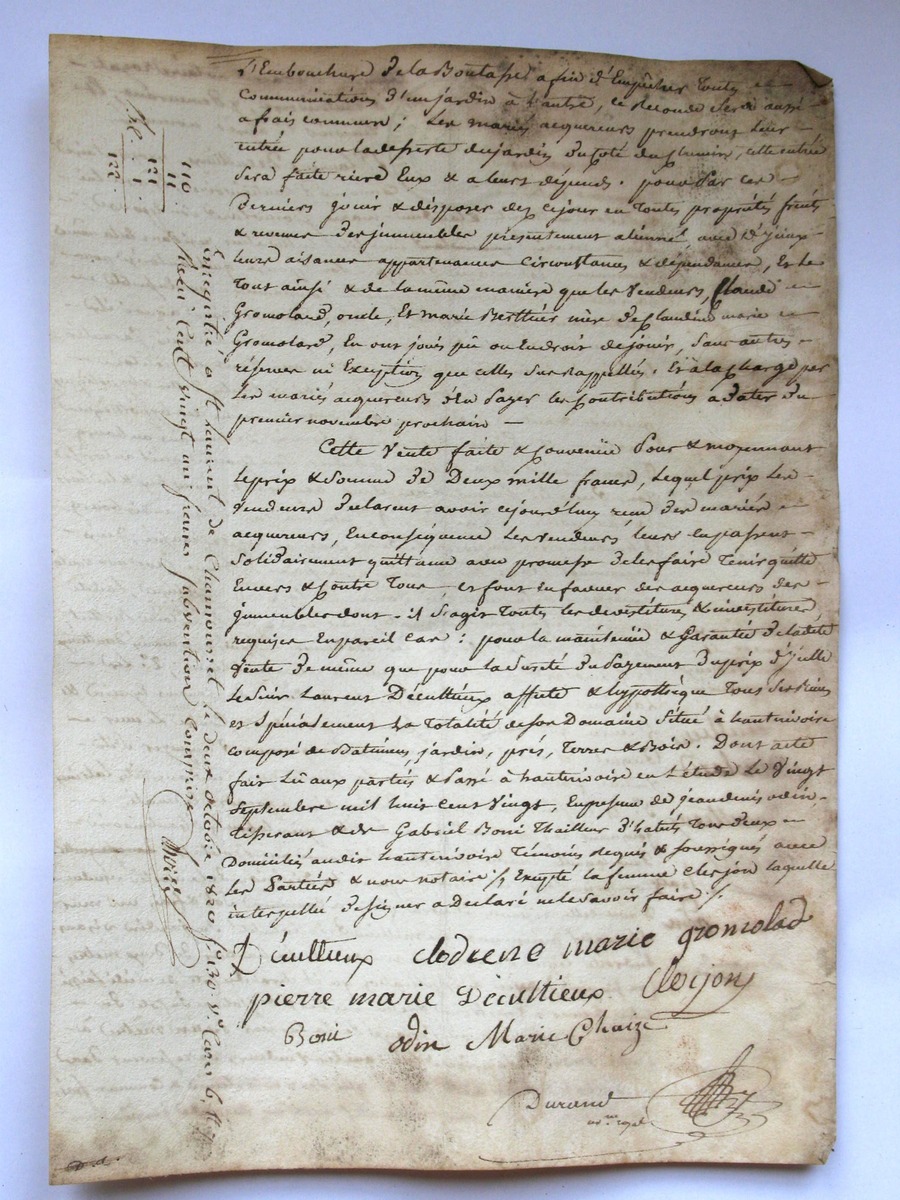 l'Embouchure de la Boutasse afin d'Empêcher toute
Communication d'un jardin à l'autre, ce second sera aussi
a frais communs; Les mariés acquereurs prendront leur
entrée pour la desserte du jardin du Coté du Chemin, cette entrée
sera faite rière Eux & a leurs dépends. pour par ces
Derniers jouir & disposer dez ce jour en toutes propriétés fruits
& revenus des immeubles présentement aliennés, avec d'yceux
leurs aisances appartenances Circonstances & dépendances, Et le
Tout ainsi & de la même manière que les Vendeurs, Claude
Gromolard, oncle, Et marie Berthier mère de Claudine marie
Gromolard, En ont jouis pû ou du droit de jouir, Sans autres
réserves ni Exception que celles Sus rappellés. Et à la Charge par
Les mariés acquereurs d'En Payer les Contributions a dater du
premier novembre prochain
Cette Vente faite & Convenüe Pour & moyennant
Le prix & Somme de Deux mille francs, Lequel prix Les
Vendeurs déclarent avoir cejourd'huy reçu des mariés
acquereurs, En conséquence Les Vendeurs leurs en passent
Solidairement quittance avec promesse de les faire Tenir quitte
Envers & Contre Tous, et font en faveur des acquereurs des
immeubles dont il S'agit Toutes les devestitures & investitures
requises En pareil cas: pour la maintenüe & Garantie de la dite
Vente de même que pour la Sureté du Payement du prix d'ycelle
Le Sieur Laurent Décultieux affecte & hypothèque Tous Ses Biens
et Spécialement La Totalité de Son Domaine Situé à hauterivoire
Composé de Batimens, jardin, prés, Terres & Bois. Dont acte
fait Lû aux parties & Passé à hauterivoire en L'étude Le Vingt
Septembre mil huit Cent Vingt, En présence de jean denis odin,
tisserant & de Gabriel Boni Thailleur d'habits Tous deux
Domiciliés audit hauterivoire Témoins requis & Soussignés avec
Les Parties & nous notaire ./. Excepté la femme Clerjon laquelle
interpellée de signer a Declaré ne le Savoir faire ./.
Décultieux clodiene marie gromolad
pierre marie Décultieux Clerjon
Boni odin Marie Chaize
Durand
no.re royal
110.
11
121
1.
122.
Enregistré à St Laurent de Chamousset le deux octobre 1820 f.o 130 v.o Case 6,
Reçu Cent vingt un francs Subvention Comprise